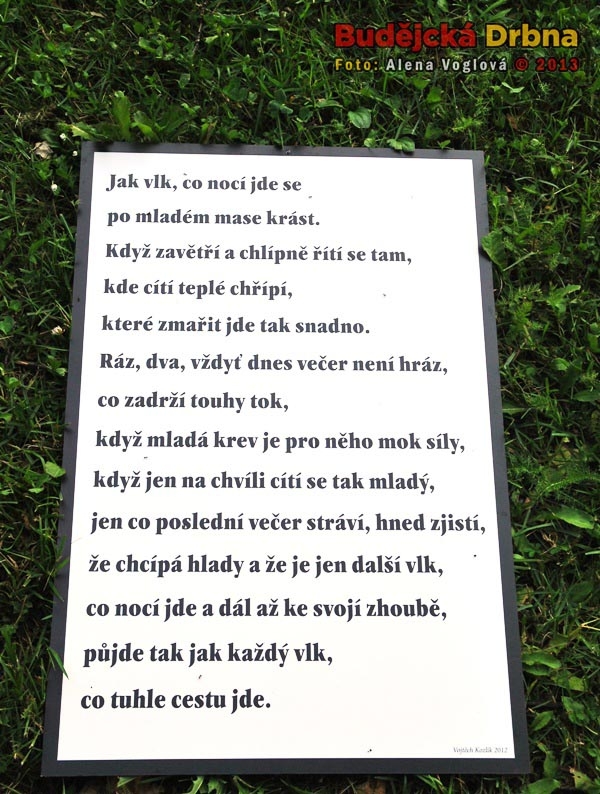 Budějcká Drbna
Foto: Alena Voglová © 2013
Jak vlk, co nocí jde se
po mladém mase krást.
Když zavětří a chlípně řítí se tam,
kde cítí teplé chřípí,
které zmařit jde tak snadno.
Ráz, dva, vždyť dnes večer není hráz,
co zadrží touhy tok,
když mladá krev je pro něho mok síly,
když jen na chvíli cítí se tak mladý,
jen co poslední večer stráví, hned zjistí,
že chcípá hlady a že je jen další vlk,
co nocí jde a dál až ke svojí zhoubě,
půjde tak jak každý vlk,
co tuhle cestu jde.
Vojtěch Kozlík 2012